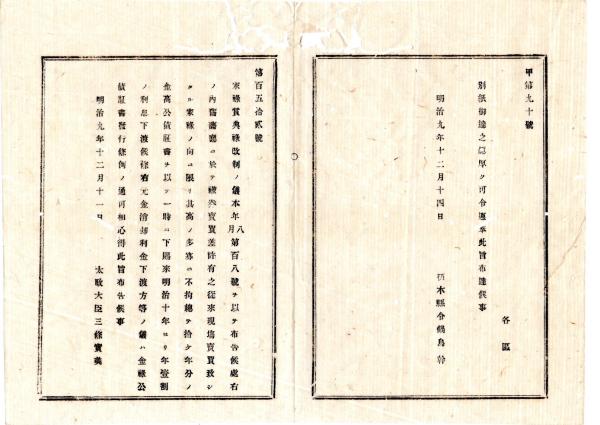 甲第九十號
各區
別紙御達之條厚ク可令遵奉此旨布達候事
明治九年十二月十四日
栃木縣令鍋島幹
第百五拾貳號
家祿賞典祿改制ノ儀本年八月第百八號ヲ以テ布告候處右
ノ內舊藩廳ニ於テ祿券賣買差許有之從來現場賣買致シ
タル家祿ノ向ニ限リ其高ノ多寡ニ不拘總テ拾ケ年分ノ
金高公債證書ヲ以テ一時ニ下賜來明治十年ヨリ年壹割
ノ利息下渡候條右元金消却利金下渡方等ノ儀ハ金祿公
債證書發行條例ノ通可相心得此旨布告候事
明治九年十二月十一日
太政大臣三條實美